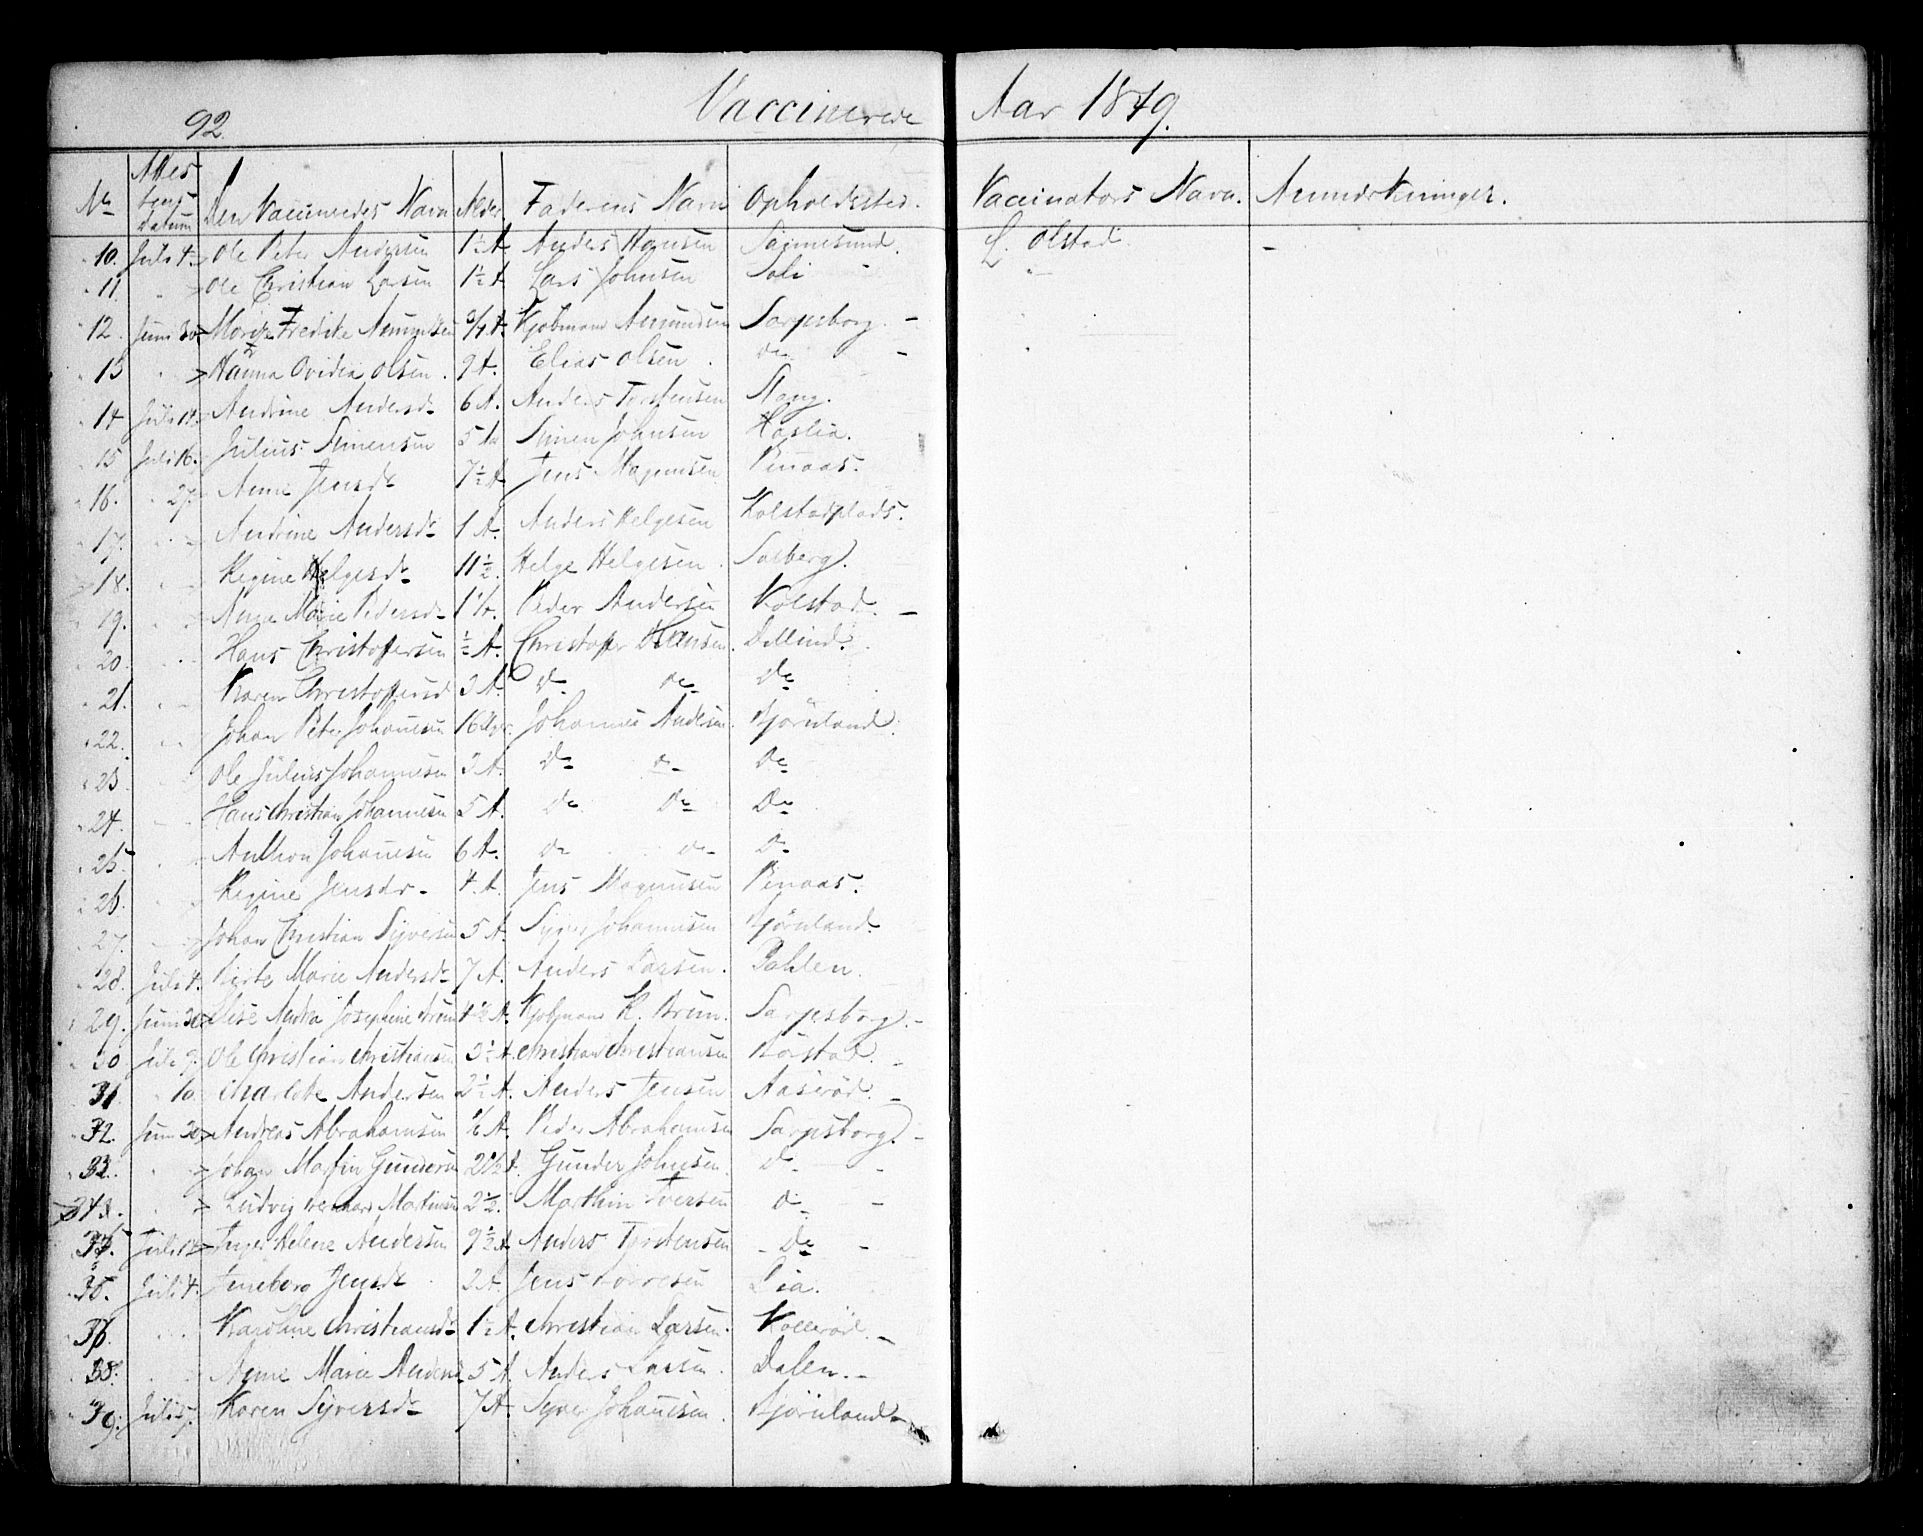 92
Vaccinerede Aar 1849.
No Attestens Datum Den Vaccineredes Navn Alder Faderens Navn Opholdssted. Vaccinators Navn. Anmærkninger.
10. Juli 4. Ole Peter Andersen 1½ A Anders Hansen Sannesund. L. Olstad -
11. " Ole Christian Larsen 1½ A Lars Johnsen Soli - "
12. Juni 30 Fredike Kjøbmand Amundsen Sarpsborg. -
13 " Hanna Ovidia Olsen. 9 A. Elias Olsen. do -
14 Juli 14. Andrine Andersd 6 A. Anders Torstensen Stang.
15 Juli 16. Julius Simensen 5 Aa Simen Johnsen Haslia.
16. " 27. Anne Jensd 7½ A Jens Magnusen Runaas.
17. " Andrine Andersd 1 A. Anders Helgesen Kolstadplads.
18. " Regine Helgesd 11½. Helge Helgesen. Solberg.
19. " Anne Marie Pedersd Peder Andersen Kolstad. -
20 " Hans Christofersen ½ A. Christoffer Hansen. Dellind.
21. " Karen Christoffersd 3 A. do do do
22. " Johan Peter Johanesen 16 Uger Johannes Andersen. Bjørnland.
23 " Ole Julius Johannesen 3 A. do do do
24. " Hans Christian Johannesen 5 A. do do do
25 " Anthon Johanesen 6 A. do do do
26 " Regine Jensdr 4. A. Jens Magnusen Runaas.
27. " Johan Christian Syversen 5 A. Syver Johannesen Bjørnland.
28. Juli 4. Berte Marie Andersd 7 A. Anders Larsen. Dahlen.
29. Juni 30 Lise Andrea Josephine Brun 4½ A. Kjøbmand K. Brun. Sarpsborg. -
30 Juli 9. Ole Christian Christiansen 3½ A. Christian Christiansen Børstad. -
31 " 10. Charlotte Andersen 2½ A. Anders Jensen Aaserød. -
32. Juni 30 Andreas Abrahamsen A. Peder Abrahamsen Sarpsborg. -
33. " Johan Martin Gundersen Gunder Johnsen. do -
34. " Ludvig Martinsen 2½. Marthin Iversen do -
Juli 14 Inger Helene Andersen 9½ A. Anders Torstensen - do -
Juli 4. Jensd 2 A. Jens Lia.
" Karoline Christiansd 1½ A. Christian Larsen. Kollerød. -
38. " Anne Marie Andersd 5 A. Anders Larsen. Dalen. -
39. Juli 5. Karen Syversd 7 A. Syver Johanesen. Bjørnland -